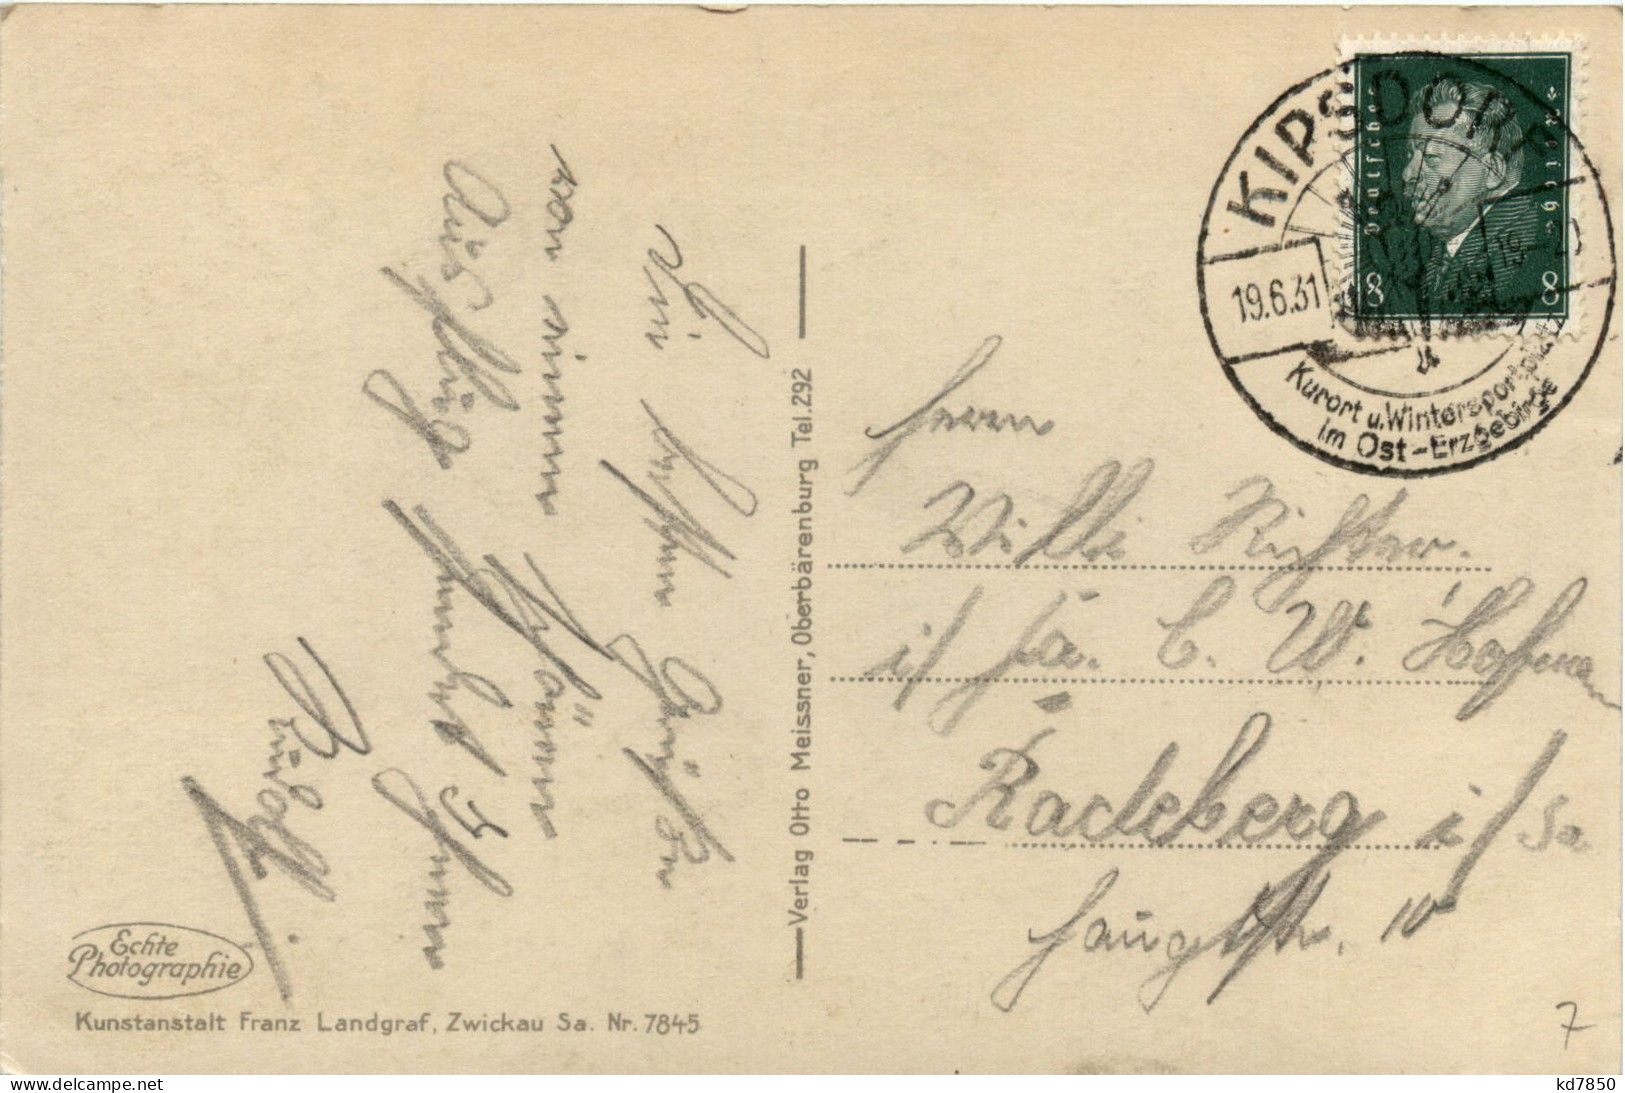 Die besten Grüße
von meiner
Ausflug sendet
Rudolf.
Verlag Otto Meissner, Oberbärenburg Tel. 292
KIPSDORF
19.6.31
19-20
Kurort u. Wintersportplatz
im Ost-Erzgebirge
Deutsches Reich
8 8
Herrn
Willi Richter.
i/ Fa. C. W. Hofmann
Radeberg i/Sa
Hauptstr. 10
Echte
Photographie
Kunstanstalt Franz Landgraf, Zwickau Sa. Nr. 7845
7
kd7850